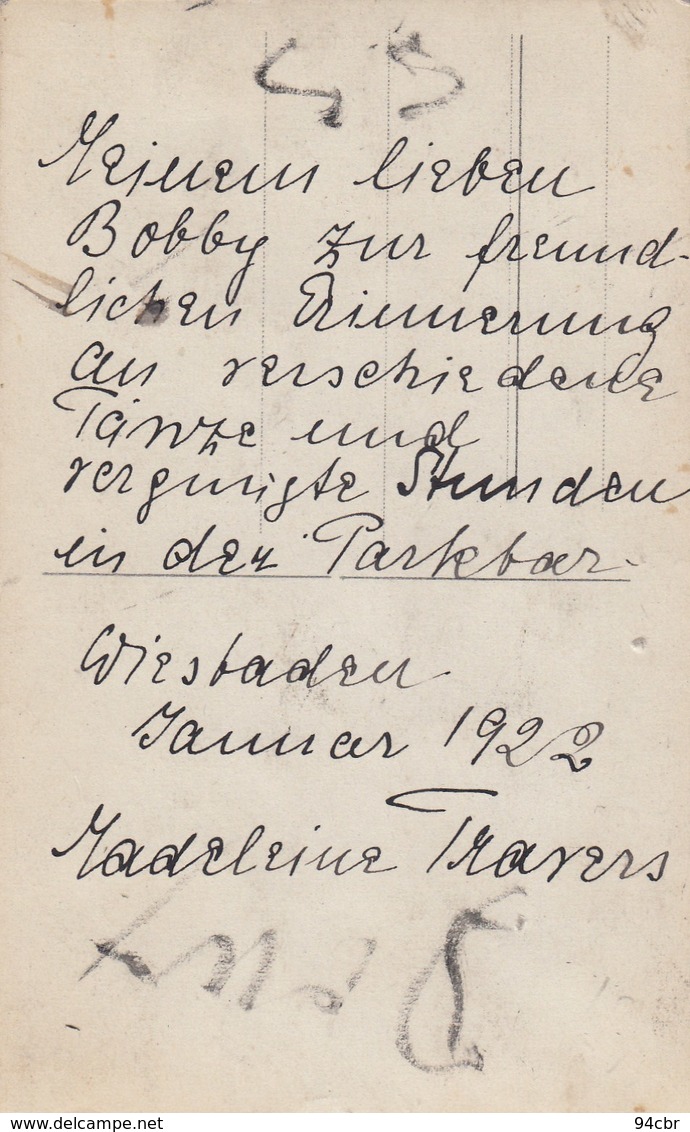 Meinem lieben
Bobby zur freund-
lichen Erinnerung
an verschiedene
Tänze und
vergnügte Stunden
in der Parkbar.
Wiesbaden
Januar 1922
Madeleine Travers
delcampe.net
94cbr